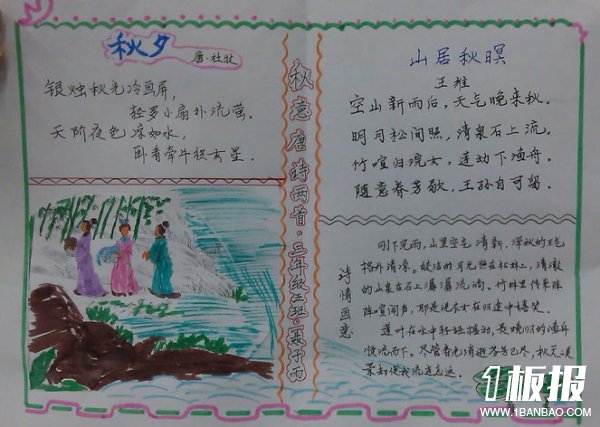 秋夕
唐·杜牧
银烛秋光冷画屏,
轻罗小扇扑流萤。
天阶夜色凉如水,
卧看牵牛织女星。
秋意唐诗两首·三年级二班·聂子雨
山居秋暝
王维
空山新雨后,天气晚来秋。
明月松间照,清泉石上流。
竹喧归浣女,莲动下渔舟。
随意春芳歇,王孙自可留。
诗情画意
刚下完雨,山里空气清新,深秋的天色
格外清凉。皎洁的月光照在松林上,清澈
的山泉在石上潺潺流淌。竹林里传来阵
阵喧闹声,那是洗衣女在归途中嬉笑。
莲叶在水中轻轻摇动,是晚归的渔舟
顺流而下。尽管春光
1板报
WWW.1BANBAO.COM